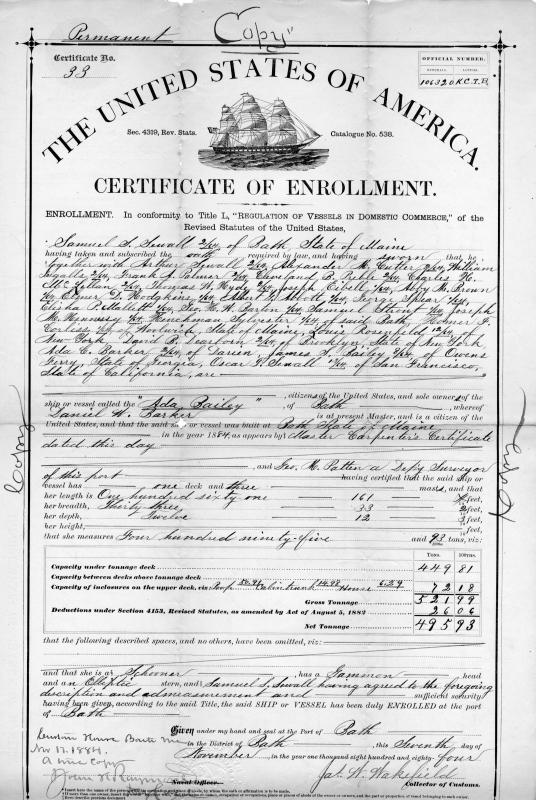 Permanent
"Copy"
Certificate No.
33
OFFICIAL NUMBER.
NUMERALS. LETTERS.
106320 K.C.T.B.
THE UNITED STATES OF AMERICA.
Sec. 4319, Rev. Stats. Catalogue No. 538.
CERTIFICATE OF ENROLLMENT.
ENROLLMENT. In conformity to Title L, "REGULATION OF VESSELS IN DOMESTIC COMMERCE," of the
Revised Statutes of the United States,
Samuel S. Sewall 2/64, of Bath, State of Maine
having taken and subscribed the oath required by law, and having sworn that he
together with Arthur Sewall 2/64, Alexander M. Cutter 2/64, William
Ingalls 2/64, Frank A. Palmer 2/64, Cleveland B. Preble 2/64, Charles H.
McLellan 2/64, Thomas W. Hyde 2/64, Joseph 1/64, M. Brown
1/64, Elmer D. Hodgkins 1/64, Albert B. Abbott 1/64, George Spear 1/64,
Elisha P. Mallett 1/64, Geo. 1/64, Samuel Strout 1/64, Joseph
M. Sylvester 1/64 of said Bath, Homer F.
Corliss of Woolwich, State of Maine, Louis 12/64 of
New York, David B. Dearborn 2/64 of Brooklyn, State of New York
Ada E. Barker 2/64, of Darien, James S. Bailey 2/64, of Owens
Ferry, State of Georgia, Oscar T. Sewall 4/64, of San Francisco,
State of California, are
citizens of the United States, and sole owners of the
ship or vessel called the "Ada Bailey", of Bath, whereof
Daniel W. Barker is at present Master, and is a citizen of the
United States, and that the said ship or vessel was built at Bath State of Maine
in the year 1884, as appears by Master Carpenter's Certificate
dated this day
, and Geo. M. Patten a Depy Surveyor
of this port having certified that the said ship or
vessel has one deck and three masts, and that
her length is One hundred sixty one 161 feet,
her breadth, Thirty three 33 feet,
her depth, Twelve 12 feet,
her height, feet,
that she measures Four hundred ninety-five and 93 tons, viz:
TONS. 100THS.
Capacity under tonnage deck 449 81
Capacity between decks above tonnage deck
Capacity of inclosures on the upper deck, viz: Poop Cabin trunk 14.98 House 6.29 72 18
Gross Tonnage 521 99
Deductions under Section 4153, Revised Statutes, as amended by Act of August 5, 1882 26 06
Net Tonnage 495 93
that the following described spaces, and no others, have been omitted, viz:
and that she is a Schooner, has a Gammon head
and an Elliptic stern, and Samuel S. Sewall having agreed to the foregoing
description and admeasurement and sufficient security
having been given, according to the said Title, the said SHIP OR VESSEL has been duly ENROLLED at the port
of Bath
Given under my hand and seal at the Port of Bath
in the District of Bath, this Seventh day of
November, in the year one thousand eight hundred and eighty-four
Jas. W. Wakefield
Naval Officer. Collector of Customs.
Custom House Bath Me
Nov 17. 1884.
A true Copy
Copy